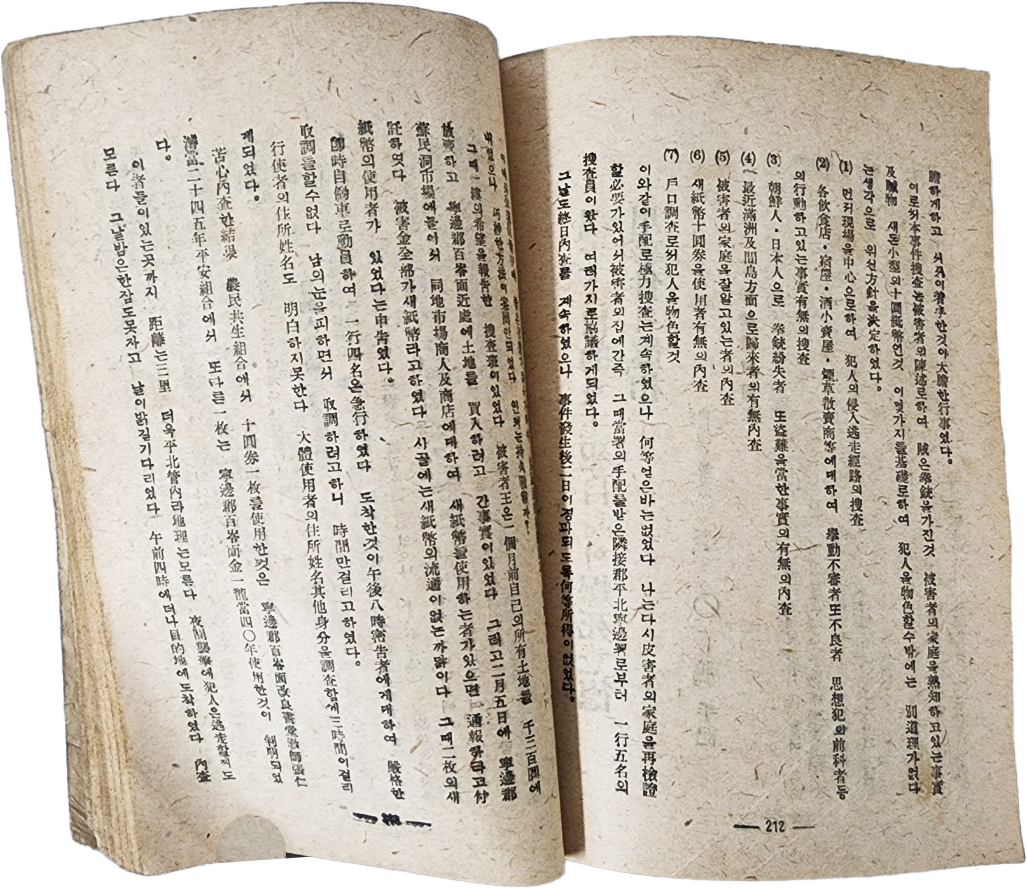 膽하게하고 着手한것이大膽한行事였다。
이로써本事件搜査는被害者의陳述로하여 賊은拳銃을가진것 被害者의家庭을熟知하고있는事實
及贓物 새돈小型의十圓紙幣인것 이몇가지를基礎로하여 犯人을物色할수밖에는 別道理가없다
는생각으로 위선方針을決定하였다。
(1) 먼저現場을中心으로하여 犯人의侵入逃走經路의搜査
(2) 各飮食店・宿屋・酒小賣屋・煙草散賣商等에대하여 擧動不審者또不良者 思想犯의前科者등
의行動하고있는事實有無의搜査
(3) 朝鮮人・日本人으로 拳銃紛失者 또盜難을當한事實의有無의內査
(4) 最近滿洲及間島方面으로歸來者의有無內査
(5) 被害者의家庭을잘알고있는者의內査
(6) 새紙幣十圓券을使用者有無의內査
(7) 戶口調査로써犯人을物色할것
이와같이手配로極力搜査는계속하였으나 何等얻은바는없었다 나는다시皮害者의家庭을再檢證
할必要가있어서被害者의집에간즉 그때當署의手配를받은隣接郡平北寧邊署로부터 一行五名의
搜査員이왔다 여러가지로協議하게되었다。
그날도終日內査를 계속하였으나 事件發生後二日이경과되도록何等所得이없었다。
212
그때一縷의希望을報告한 搜査班이있었다 被害者王은一個月前自己의所有土地를 千三百圓에
放賣하고 寧邊郡百嶺面近處에土地를 買入하려고 간事實이있었다 그리고二月五日에 寧邊郡
蘇民洞市場에들어서 同地市場商人及商店에대하여 새紙幣를使用하는者가있으면 通報하라고付
託하였다 被害金全部가새紙幣라고하였다 시골에는새紙幣의流通이없는까닭이다 그때二枚의새
紙幣의使用者가 있었다는申告였다。
卽時自働車로動員하여 一行四名은急行하였다 도착한것이午後八時密告者에게대하여 嚴格한
取調를할수없다 남의눈을피하면서 取調하려고하니 時間만걸리고하였다。
行使者의住所姓名도 明白하지못한다 大體使用者의住所姓名其他身分을調査함에三時間이걸리
게되었다。
苦心內査한結果 農民共生組合에서 十圓券一枚를使用한것은 寧邊郡百嶺面改良書堂敎師張仁
當二十四五年平安組合에서 또다른一枚는 寧邊郡百嶺面金 當四〇年使用한것이 判明되었
다。
이者들이있는곳까지 距離는三里 더욱平北管內라地理는모른다 夜間襲擊에犯人은逃走할께도
모른다 그날밤은한잠도못자고 날이밝길기다리었다 午前四時에떠나目的地에도착하였다 內査